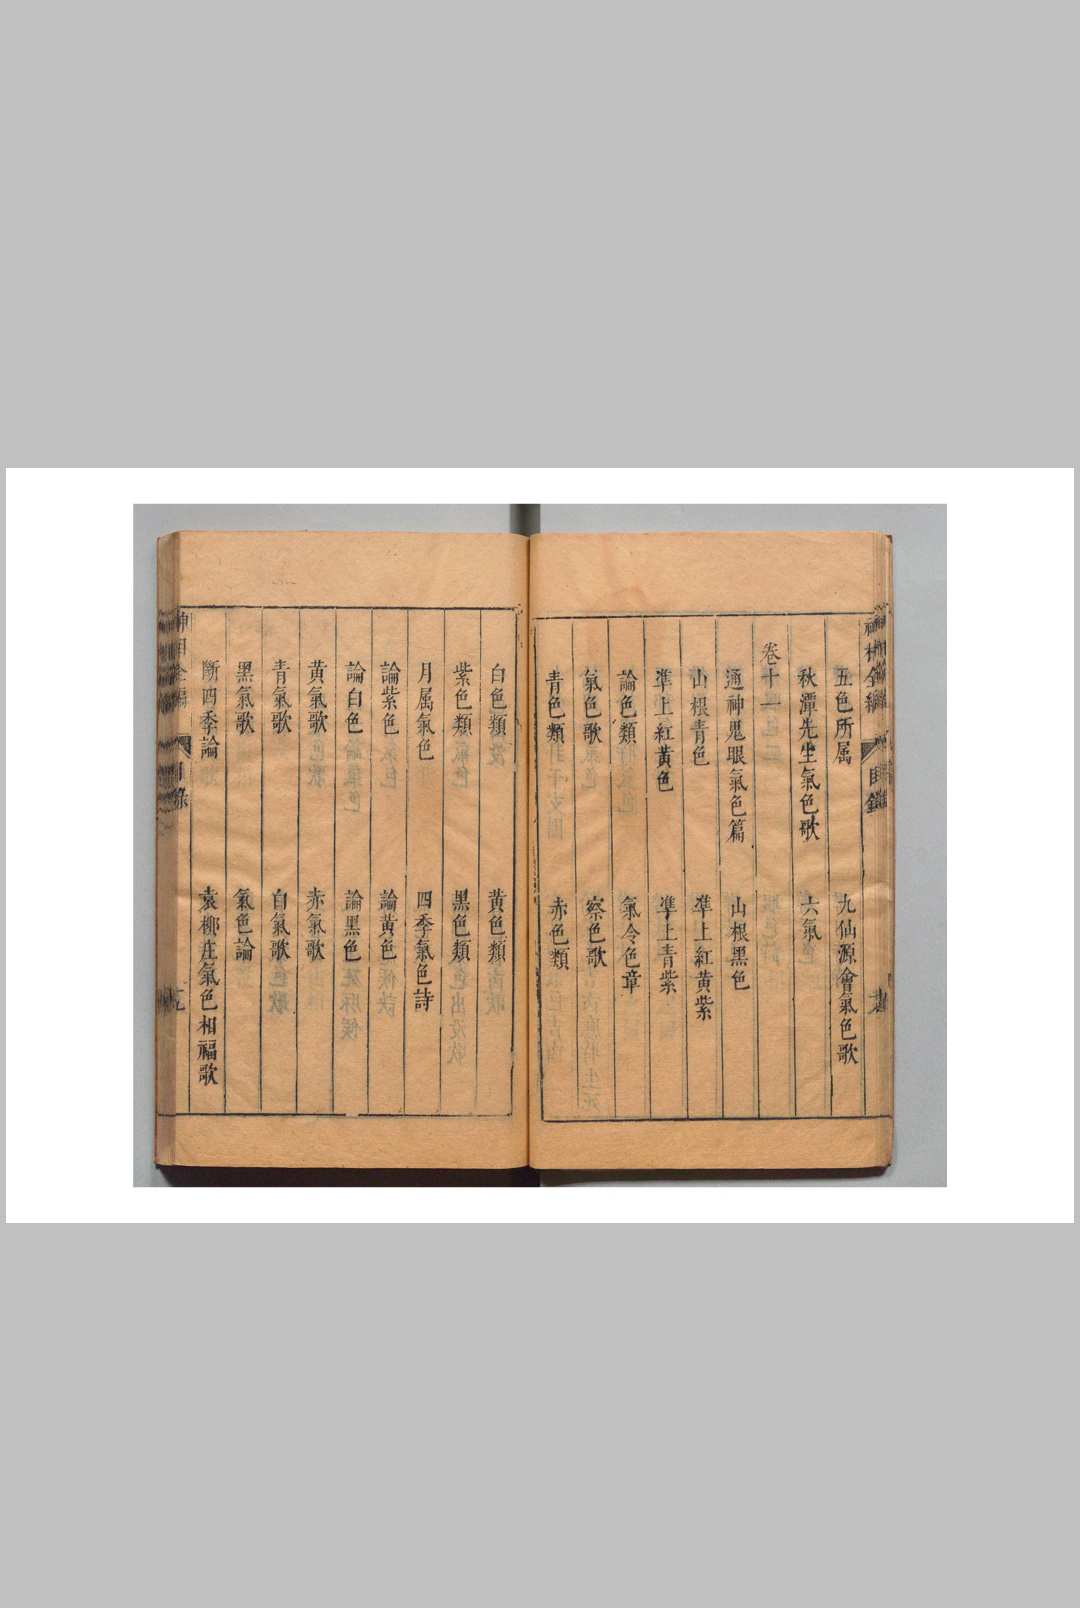 神相全編 目錄
五色所属 九仙源會氣色歌
秋潭先生氣色歌 六氣
卷十一
通神鬼眼氣色篇 山根黑色
山根青色 準上紅黃紫
準上紅黃色 準上青紫
論色類 氣令色章
氣色歌 察色歌
青色類 赤色類
白色類 黃色類
紫色類 黑色類
月属氣色 四季氣色詩
論紫色 論黃色
論白色 論黑色
黃氣歌 赤氣歌
青氣歌 白氣歌
黑氣歌 氣色論
斷四季論 袁柳庄氣色相福歌
神相全編 目錄